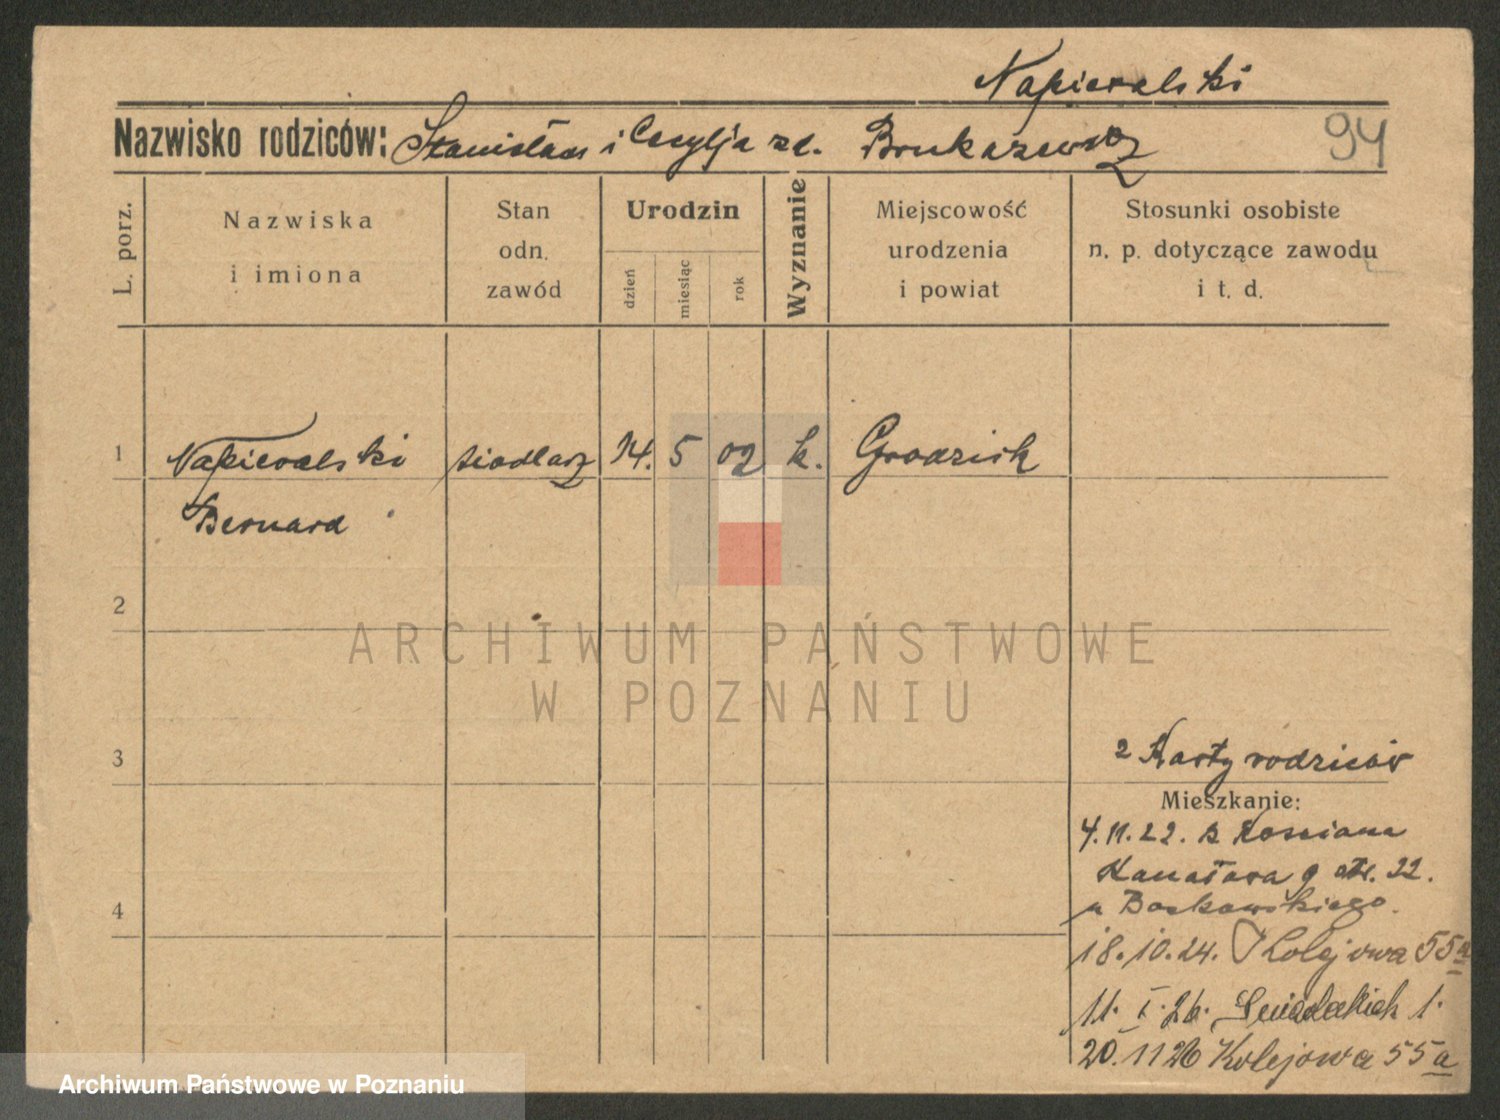 Napieralski
Nazwisko rodziców: Stanisław i Cecylja zd. 94
L. porz.
Nazwiska
i imiona
Stan
odn.
zawód
Urodzin
dzień
miesiąc
rok
Wyznanie
Miejscowość
urodzenia
i powiat
Stosunki osobiste
n. p. dotyczące zawodu
i t. d.
1 Napieralski siodlarz 14. 5 02 k. Grodzisk
Bernard
2
ARCHIWUM PAŃSTWOWE
W POZNANIU
3
2 Karty rodziców
Mieszkanie:
4.11.22. z Kościana
Kanałowa 9 str. 22.
u
4
18.10.24. Kolejowa 55a
11. I. 26. Śniadeckich 1.
20.11 26 Kolejowa 55a
Archiwum Państwowe w Poznaniu